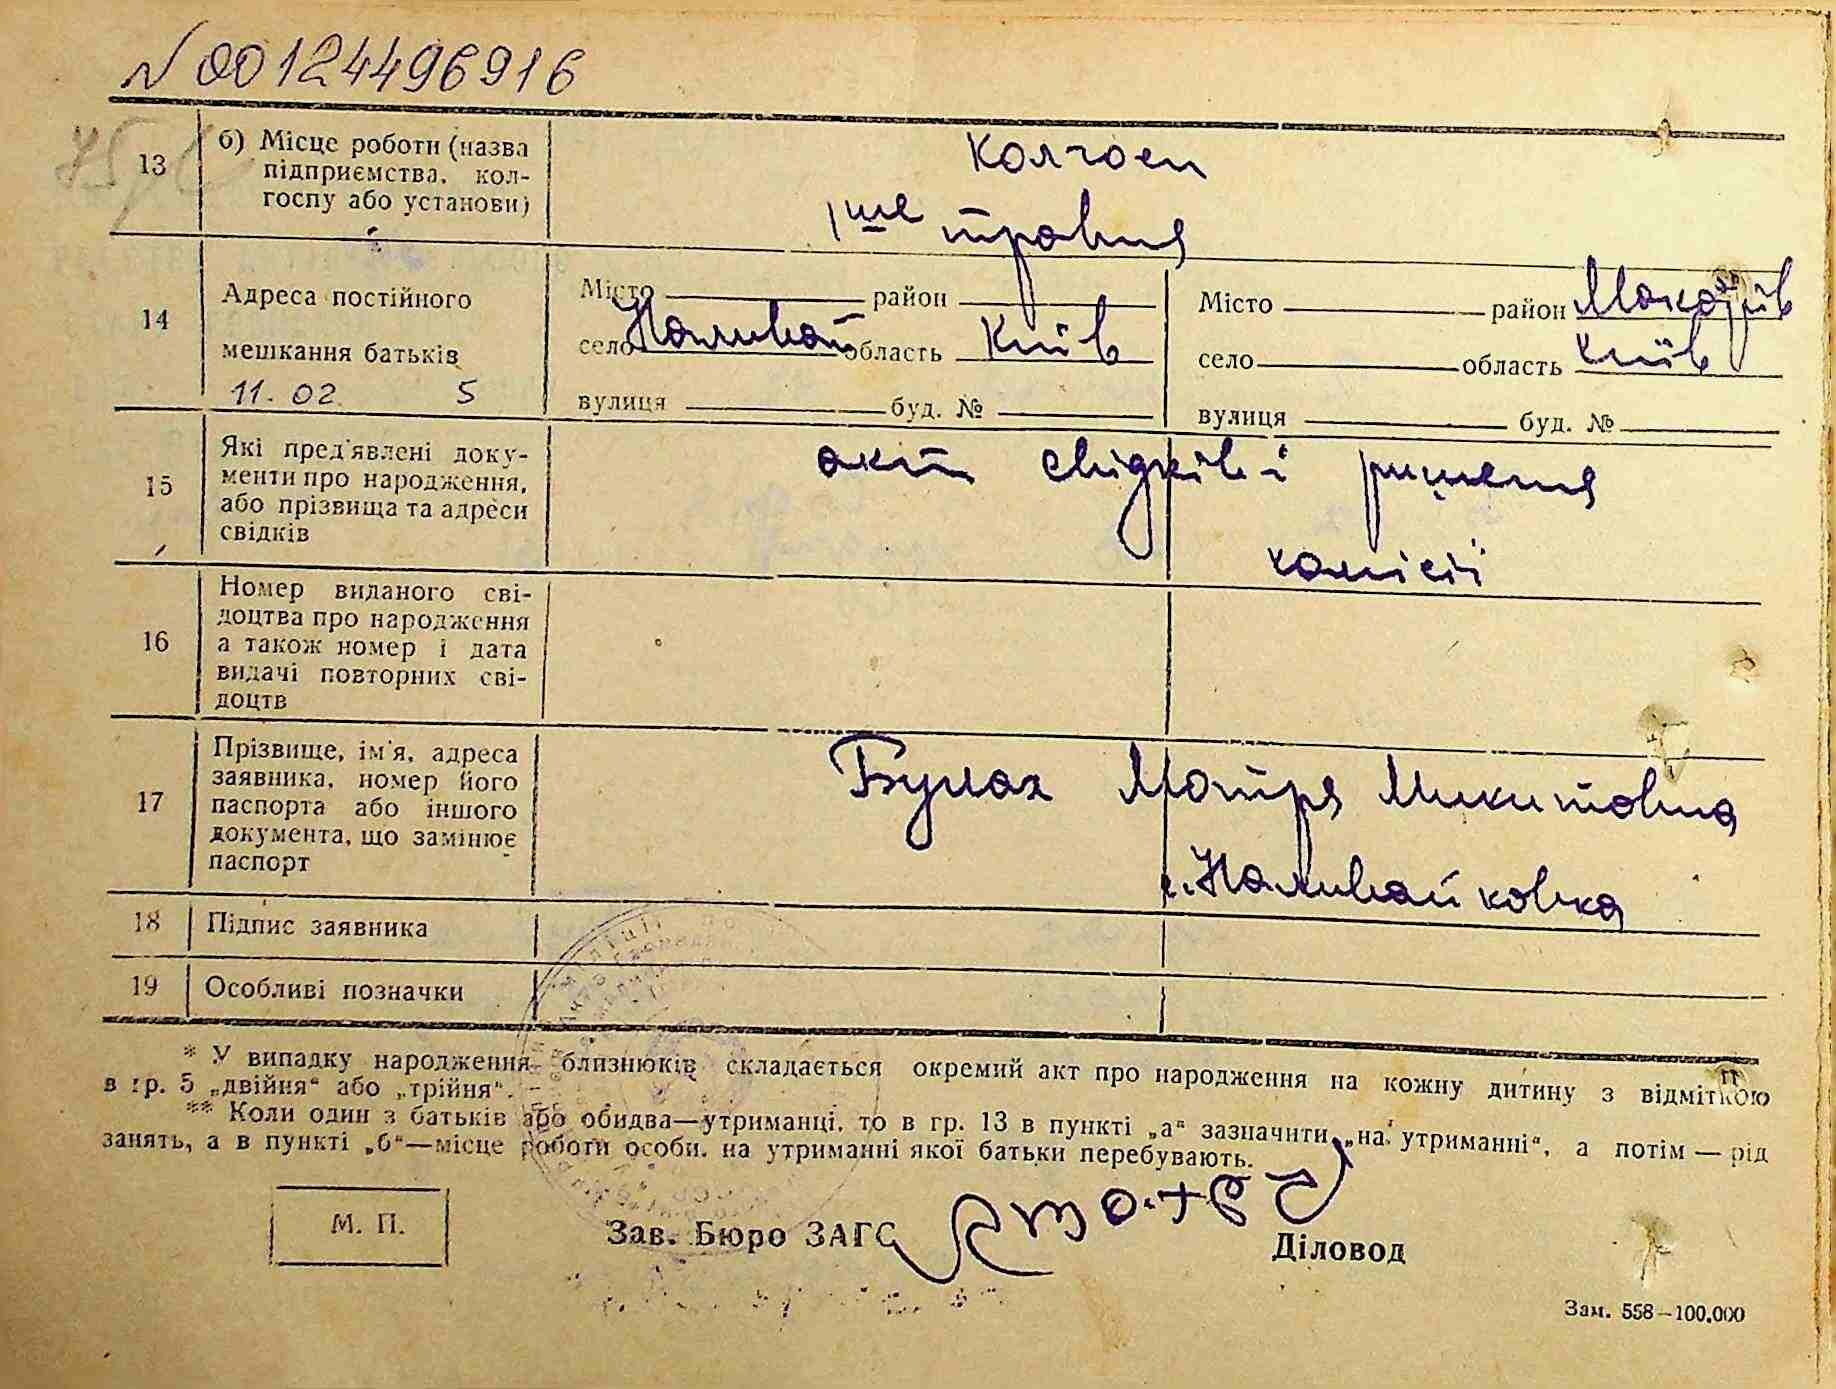 N 00124496916
13
б) Місце роботи (назва
підприємства, кол-
госпу або установи)
Колгосп
1ше травня
14
Адреса постійного
мешкання батьків
11. 02 5
Місто район
село Наливай область Київ
вулиця буд. №
Місто район Макарів
село область Київ
вулиця буд. №
15
Які пред'явлені доку-
менти про народження,
або прізвища та адреси
свідків
акт свідків і ришення
комісії
16
Номер виданого сві-
доцтва про народження
а також номер і дата
видачі повторних сві-
доцтв
17
Прізвище, ім'я, адреса
заявника, номер його
паспорта або іншого
документа, що замінює
паспорт
Булах Мотря Микитовна
с. Наливайковка
18 Підпис заявника
19 Особливі позначки
* У випадку народження близнюків складається окремий акт про народження на кожну дитину з відміткою
в гр. 5 „двійня“ або „трійня“.
** Коли один з батьків або обидва—утриманці, то в гр. 13 в пункті „а“ зазначити „на утриманні“, а потім — рід
занять, а в пункті „б“—місце роботи особи, на утриманні якої батьки перебувають.
М. П.
Зав. Бюро ЗАГС
Діловод
Зам. 558—100.000